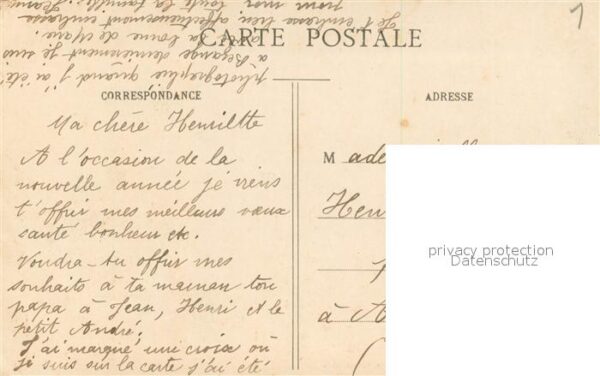 CARTE POSTALE
CORRESPONDANCE
Ma chère Henriette
A l'occasion de la
nouvelle année je viens
t'offrir mes meilleurs vœux
santé bonheur etc.
Voudra-tu offrir mes
souhaits à ta maman ton
papa à Jean, Henri et le
petit André.
J'ai marqué une croix où
je suis sur la carte j'ai été
photographié quand j'ai été
à dernièrement je suis
la bonne de
Je t'embrasse bien affectueusement embrasse
pour moi toute la famille. Jeanne
ADRESSE
Made
Hen
à A
privacy protection
Datenschutz
1